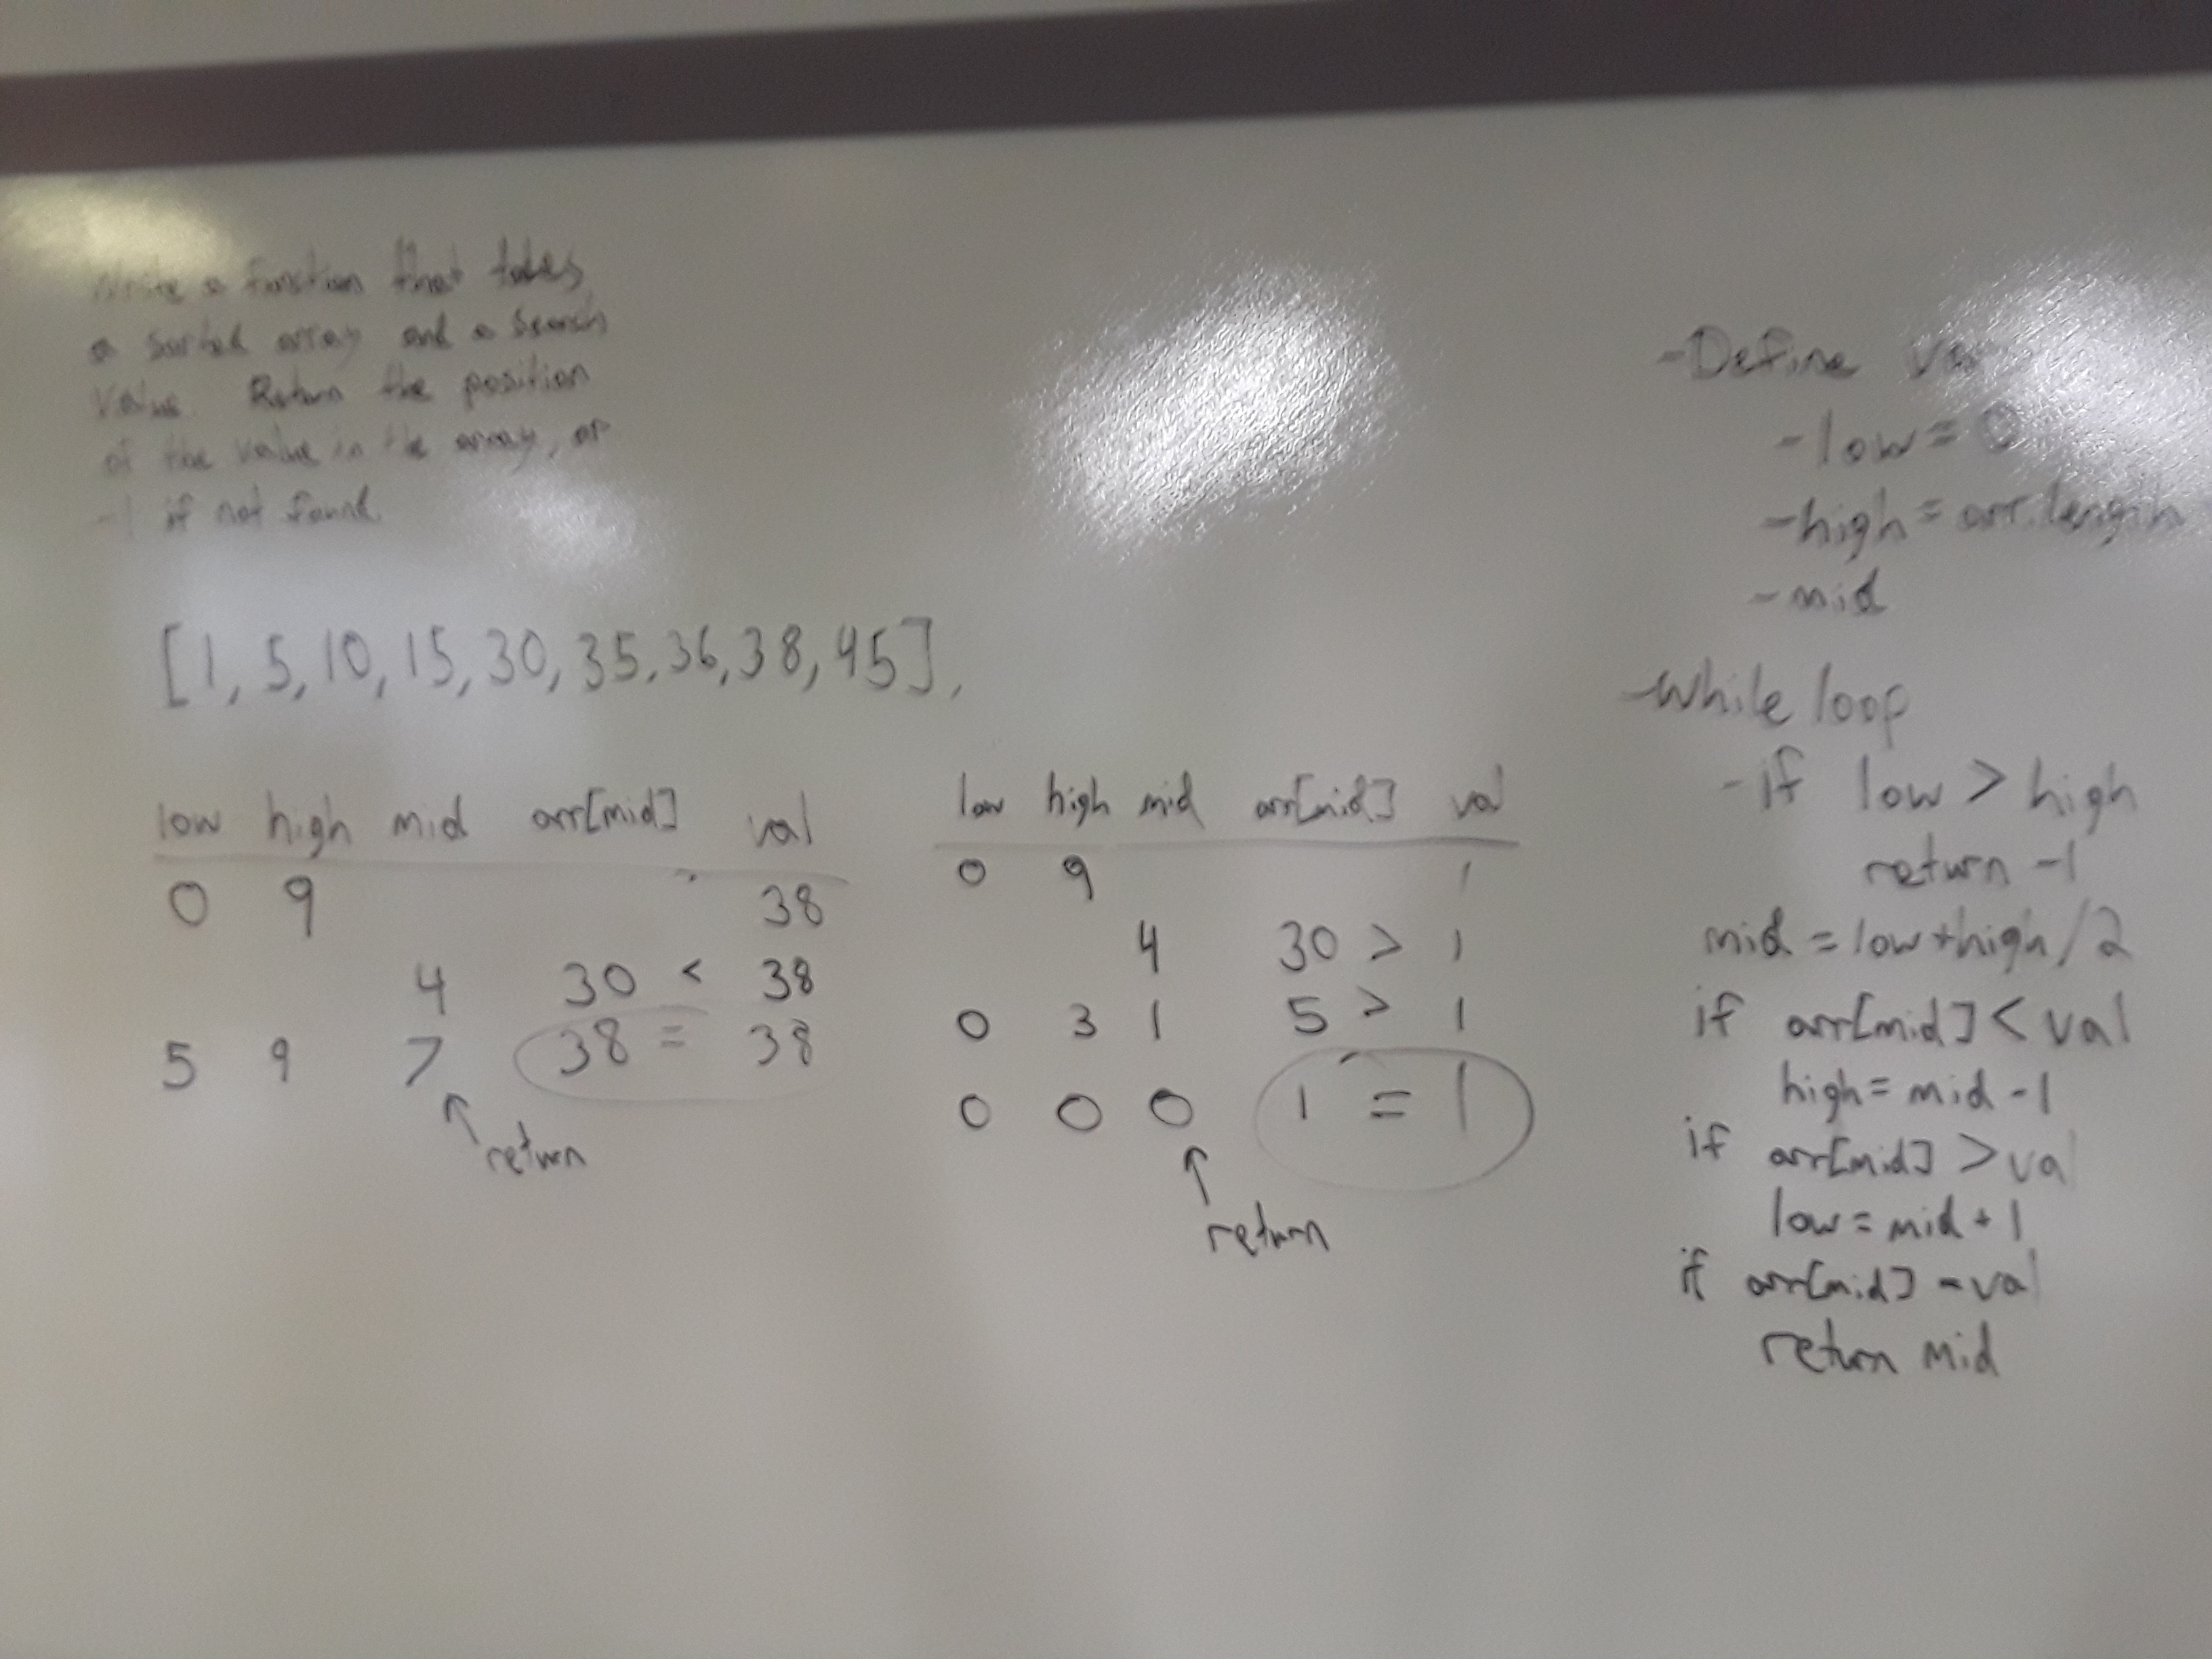 Write a function that takes
a sorted array and a search
value. Return the position
of the value in the array, or
-1 if not found.
[1, 5, 10, 15, 30, 35, 36, 38, 45],
low high mid arr[mid] val
0 9 38
4 30 < 38
5 9 7 38 = 38
return
low high mid arr[mid] val
0 9 1
4 30 > 1
0 3 1 5 > 1
0 0 0 1 = 1
return
- Define
- low = 0
- high = arr.length
- mid
- While loop
- if low > high
return -1
mid = low + high / 2
if arr[mid] < val
high = mid - 1
if arr[mid] > val
low = mid + 1
if arr[mid] = val
return mid